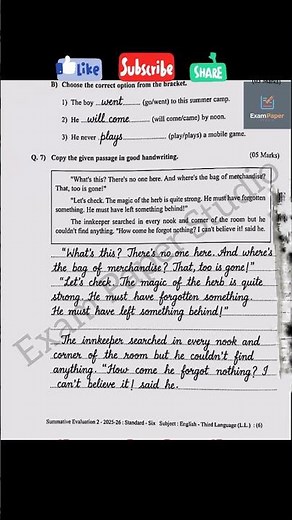 Like
Subscribe
SHARE
ExamPaper
B) Choose the correct option from the bracket.
1) The boy went (go/went) to this summer camp.
2) He will come (will come/came) by noon.
3) He never plays (play/plays) a mobile game.
Q. 7) Copy the given passage in good handwriting. (05 Marks)
"What's this? There's no one here. And where's the bag of merchandise?
That, too is gone!"
"Let's check. The magic of the herb is quite strong. He must have forgotten
something. He must have left something behind!"
The innkeeper searched in every nook and corner of the room but he
couldn't find anything. "How come he forgot nothing? I can't believe it! said he.
"What's this? There's no one here. And where's
the bag of merchandise? That, too is gone!"
"Let's check. The magic of the herb is quite
strong. He must have forgotten something.
He must have left something behind!"
The innkeeper searched in every nook and
corner of the room but he couldn't find
anything. "How come he forgot nothing? I
can't believe it! said he.
Summative Evaluation 2 - 2025-26 : Standard - Six Subject : English - Third Language (L.L.) : (6)
Exam Paper Studio